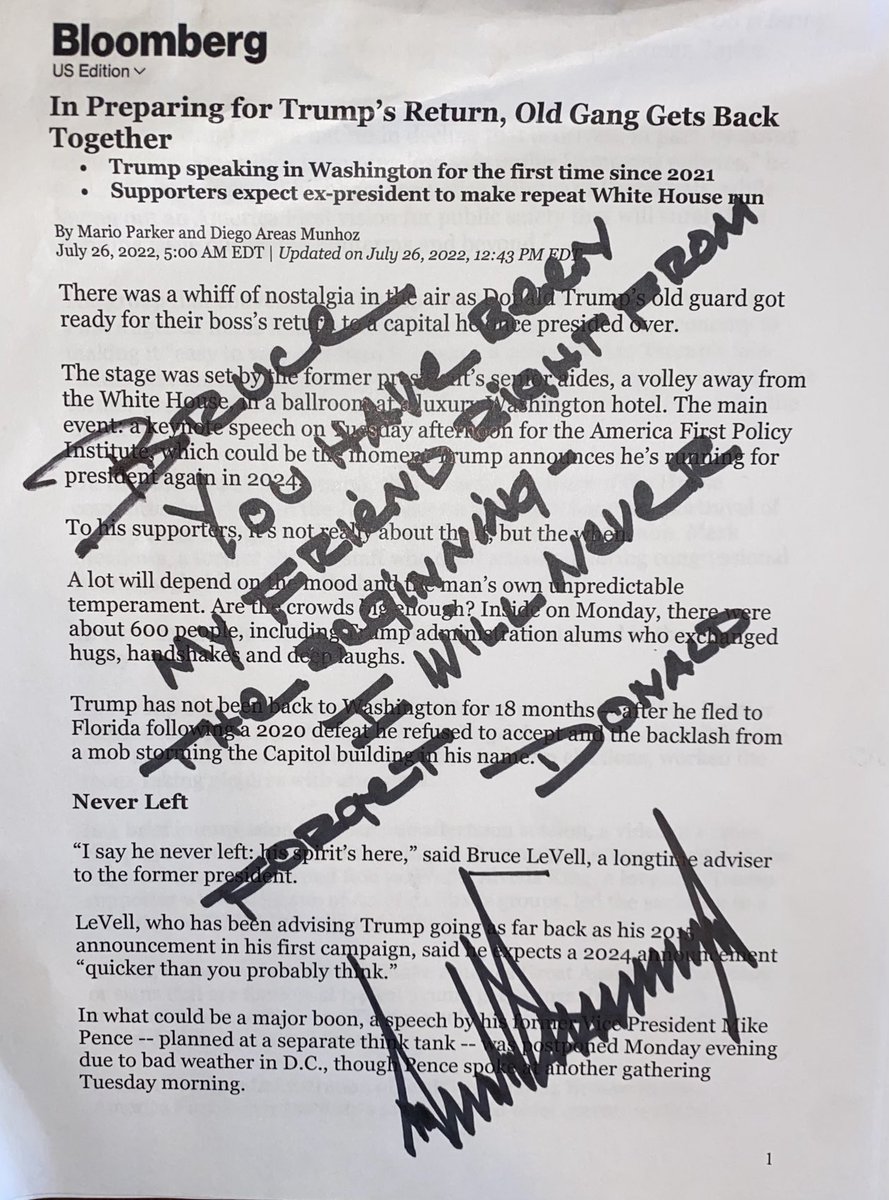 Bloomberg
US Edition
In Preparing for Trump's Return, Old Gang Gets Back
Together
• Trump speaking in Washington for the first time since 2021
• Supporters expect ex-president to make repeat White House run
By Mario Parker and Diego Areas Munhoz
July 26, 2022, 5:00 AM EDT | Updated on July 26, 2022, 12:43 PM EDT
There was a whiff of nostalgia in the air as Donald Trump's old guard got
ready for their boss's return to a capital he once presided over.
The stage was set by the former president's senior aides, a volley away from
the White House, in a ballroom at a luxury Washington hotel. The main
event: a keynote speech on Tuesday afternoon for the America First Policy
Institute, which could be the moment Trump announces he's running for
president again in 2024.
To his supporters, it's not really about the if, but the when.
A lot will depend on the mood and the man's own unpredictable
temperament. Are the crowds big enough? Inside on Monday, there were
about 600 people, including Trump administration alums who exchanged
hugs, handshakes and deep laughs.
Trump has not been back to Washington for 18 months -- after he fled to
Florida following a 2020 defeat he refused to accept and the backlash from
a mob storming the Capitol building in his name.
Never Left
“I say he never left: his spirit's here,” said Bruce LeVell, a longtime adviser
to the former president.
LeVell, who has been advising Trump going as far back as his 2015
announcement in his first campaign, said he expects a 2024 announcement
“quicker than you probably think.”
In what could be a major boon, a speech by his former Vice President Mike
Pence -- planned at a separate think tank -- was postponed Monday evening
due to bad weather in D.C., though Pence spoke at another gathering
Tuesday morning.
1
BRUCE
YOU HAVE BEEN
MY FRIEND RIGHT FROM
THE BEGINNING –
I WILL NEVER
FORGET
– DONALD